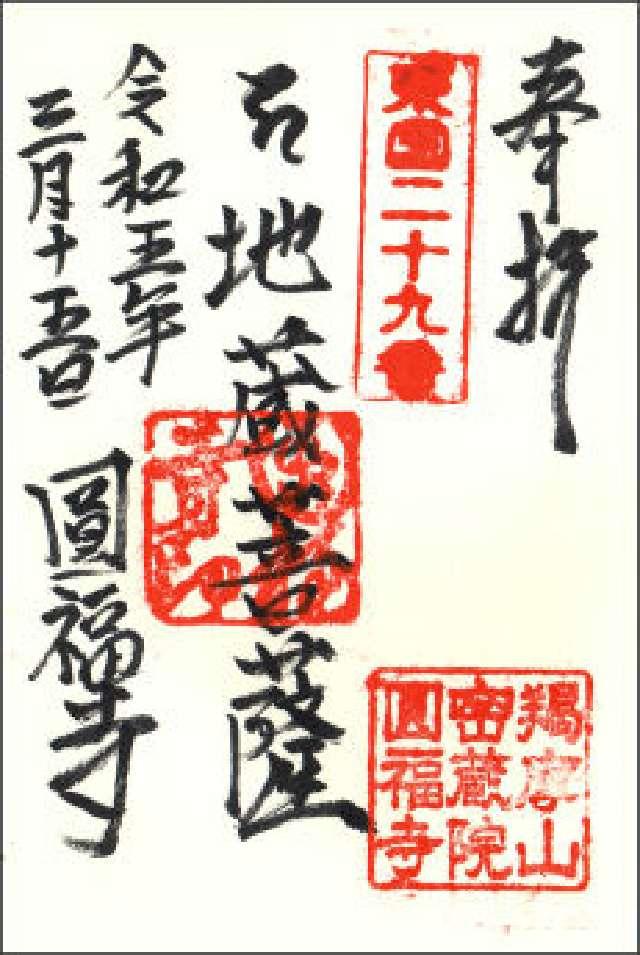 奉拝
東国二十九番
羯摩山
密蔵院
圓福寺
石地蔵菩薩
令和五年
三月十五日
圓福寺